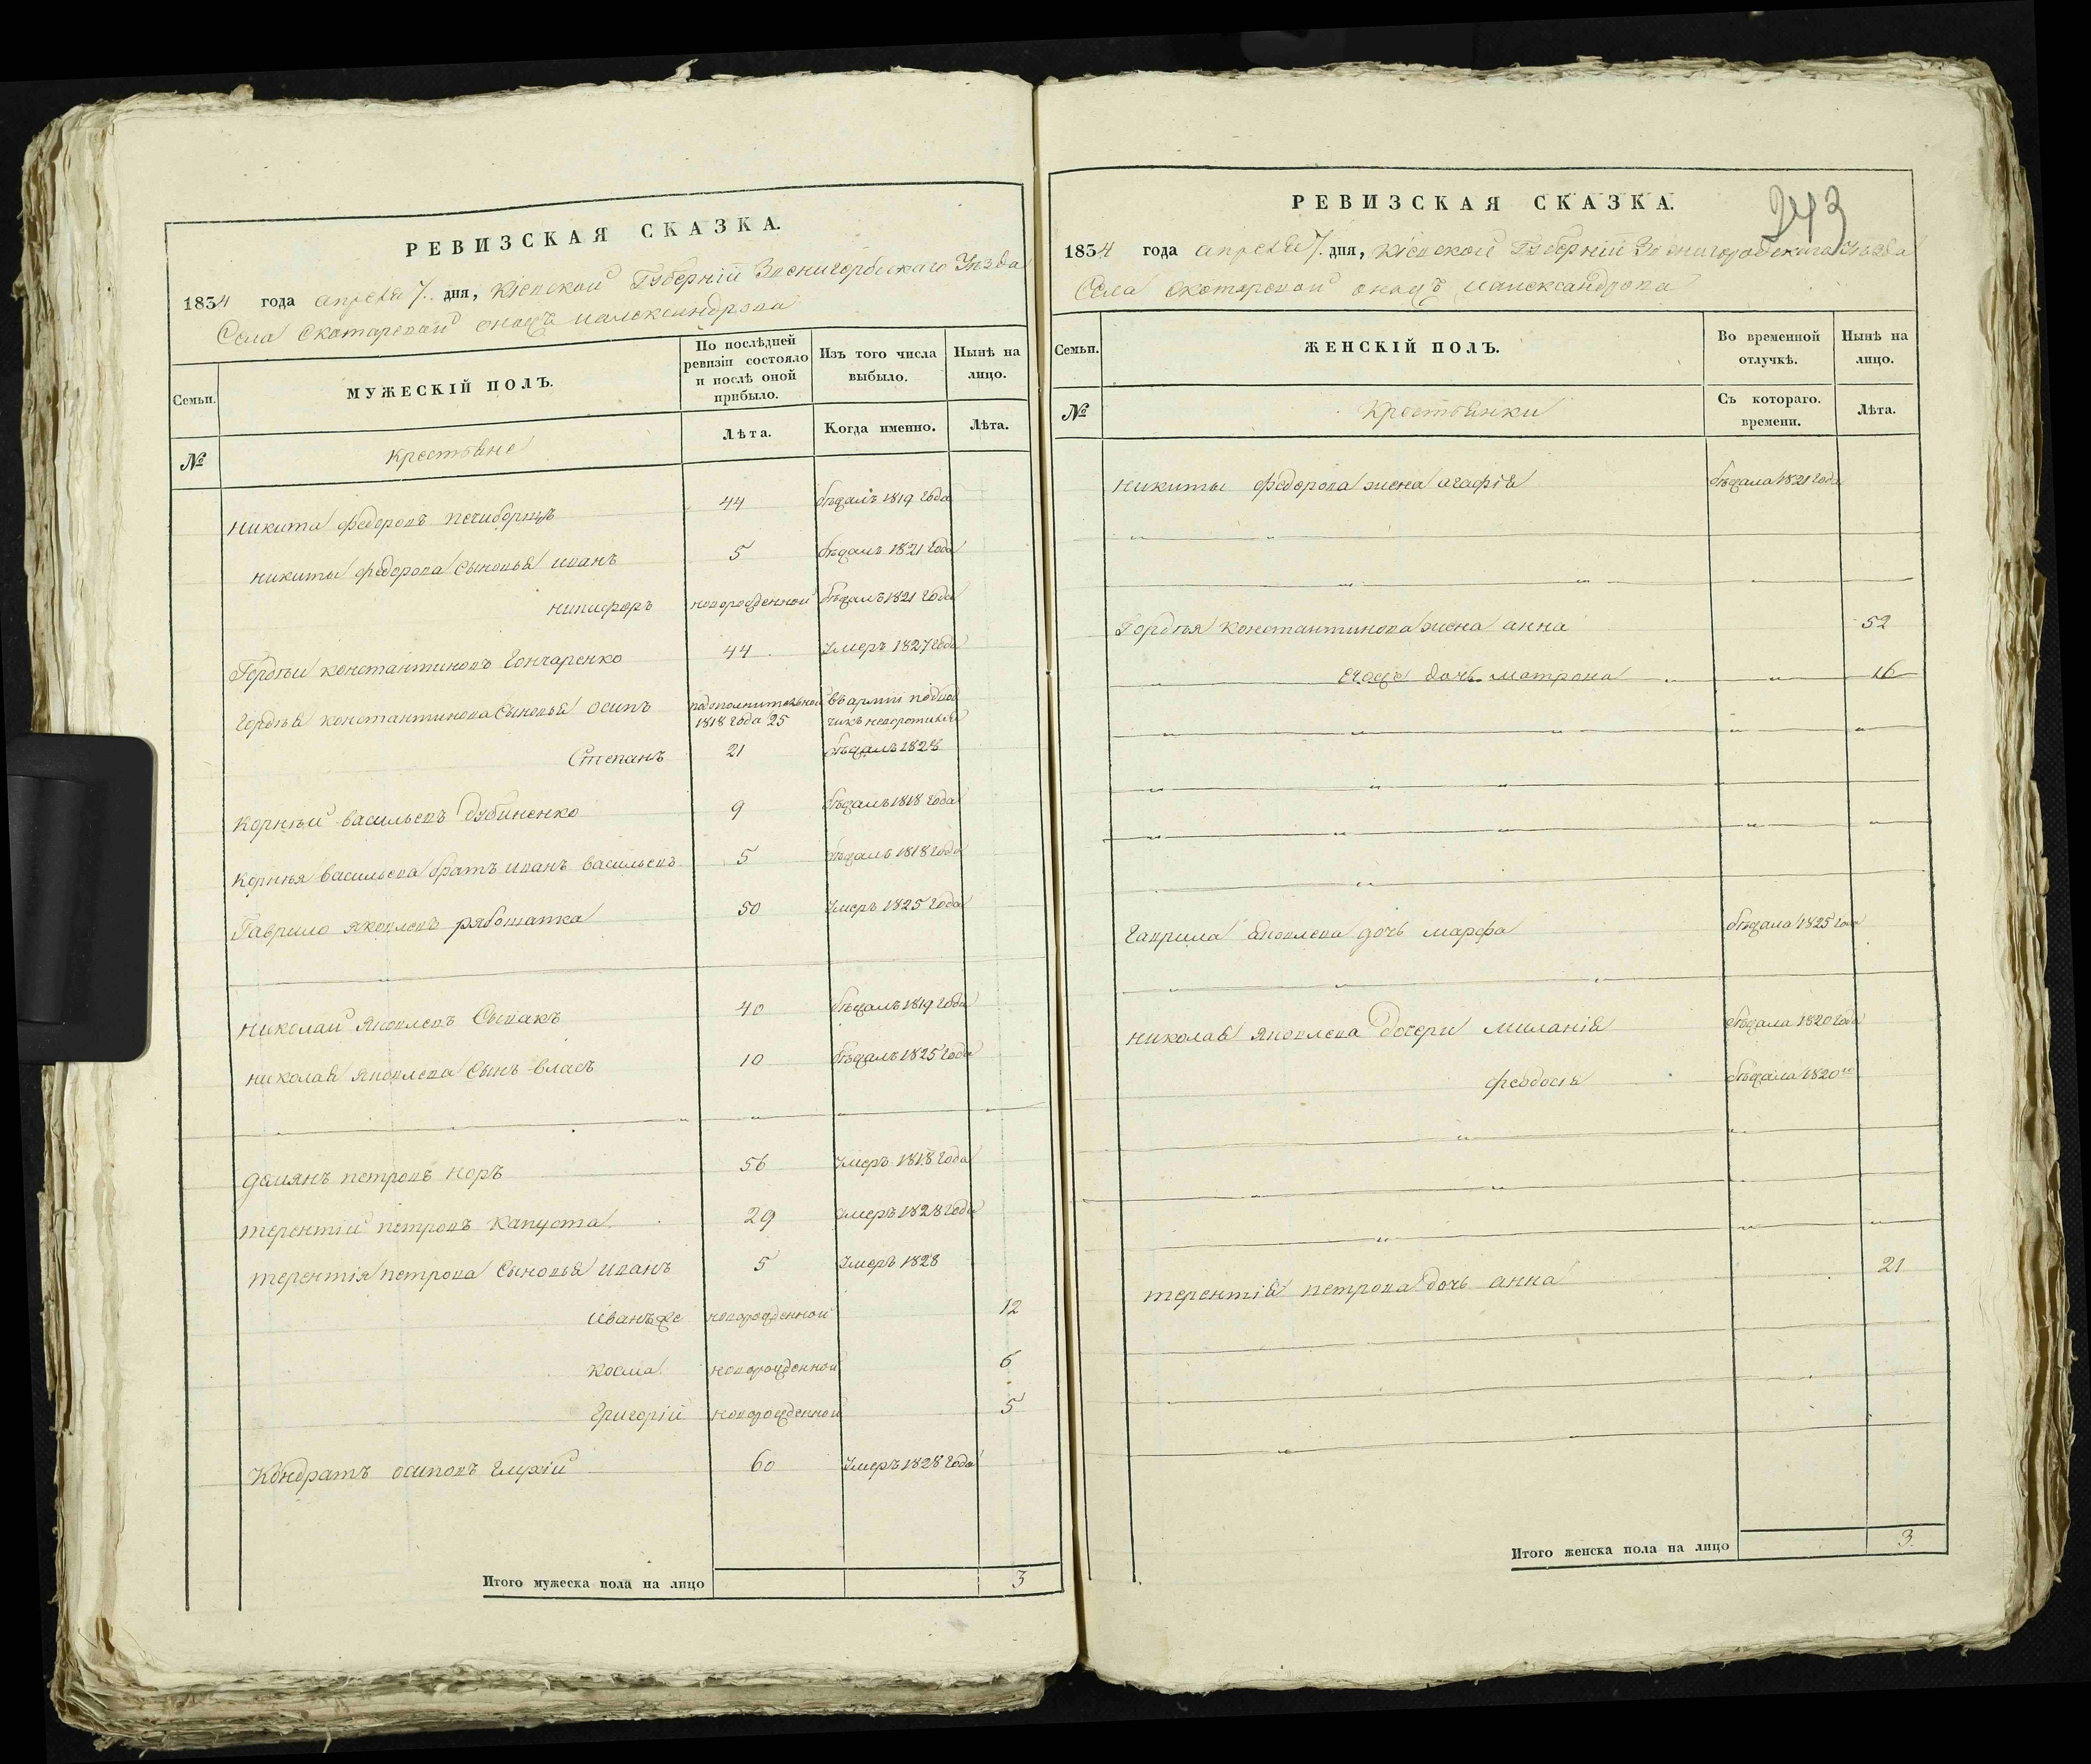 РЕВИЗСКАЯ СКАЗКА.
1834 года апреля 7. дня, Кіевской Губерніи Звенигородскаго Уѣзда
Села Скотаревой онаяжъ иалександрова
Семьи.
МУЖЕСКІЙ ПОЛЪ.
По послѣдней ревизіи состояло и послѣ оной прибыло.
Изъ того числа выбыло.
Нынѣ на лицо.
№
крестьяне
Лѣта.
Когда именно.
Лѣта.
никита федоровъ 44 бѣжалъ 1819 года
никиты федорова сыновья иванъ 5 бѣжалъ 1821 года
никифоръ новорожденной бѣжалъ 1821 года
Гордѣй константиновъ Гончаренко 44 Умеръ 1827 года
Гордѣя константинова сыновья осипъ подополнительной 1818 года 25 въ армии
Степанъ 21 бѣжалъ 1828
корнѣй васильевъ дубиненко 9 бѣжалъ 1818 года
корнѣя васильева братъ иванъ васильевъ 5 бѣжалъ 1818 года
Гаврило яковлевъ рябошапка 50 Умеръ 1825 года
николай яковлевъ Спивакъ 40 бѣжалъ 1819 года
николая яковлева сынъ власъ 10 бѣжалъ 1825 года
демянъ петровъ 56 Умеръ 1818 года
терентий петровъ капуста 29 Умеръ 1828 года
терентія петрова сыновья иванъ 5 Умеръ 1828
иванъже новорожденной 12
косма новорожденной 6
григорій новорожденной 5
Кондратъ осиповъ глухій 60 Умеръ 1828 года
Итого мужеска пола на лицо 3
243
РЕВИЗСКАЯ СКАЗКА.
1834 года апреля 7. дня, Кіевской Губерніи Звенигородскаго Уѣзда
Села Скотаревой онаяжъ иалександрова
Семьи.
ЖЕНСКІЙ ПОЛЪ.
Во временной отлучкѣ.
Нынѣ на лицо.
№
Крестьянки
Съ котораго. времени.
Лѣта.
никиты федорова жена агафія бѣжала 1821 года
Гордѣя константинова жена анна 52
егоже дочь матрона 16
гаврила яковлева дочь марфа бѣжала 1825 года
николая яковлева дочери миланія бѣжала 1820 года
феодосія бѣжала 1820 го
терентія петрова дочь анна 21
Итого женска пола на лицо 3